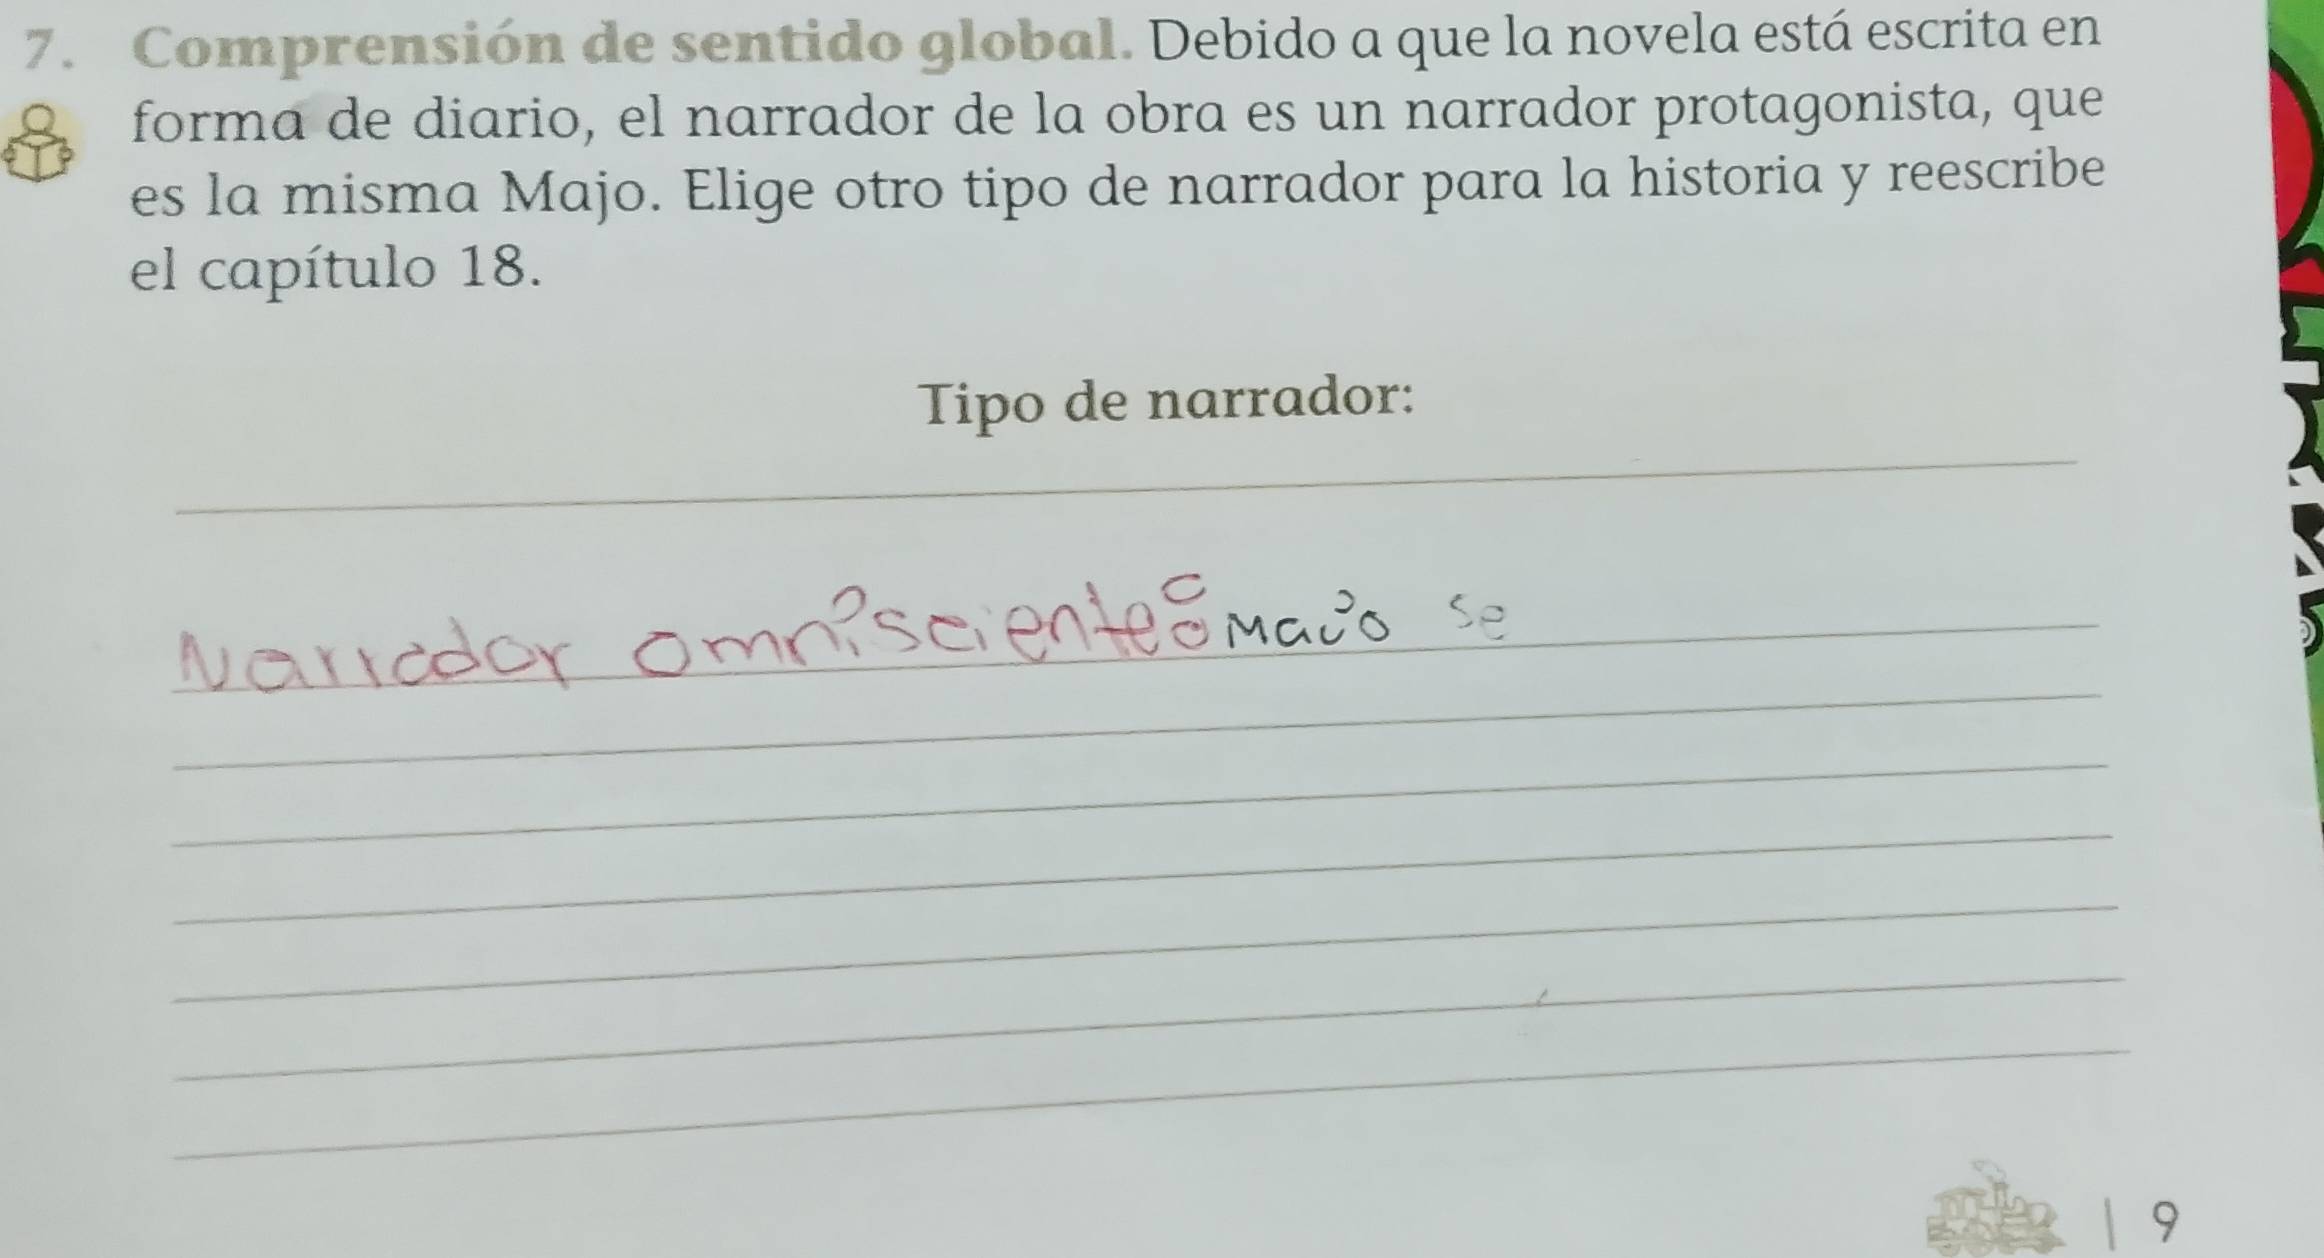 7. Comprensión de sentido global. Debido a que la novela está escrita en
forma de diario, el narrador de la obra es un narrador protagonista, que
es la misma Majo. Elige otro tipo de narrador para la historia y reescribe
el capítulo 18.
Tipo de narrador:
Narrador omnisciente: Majo se
9